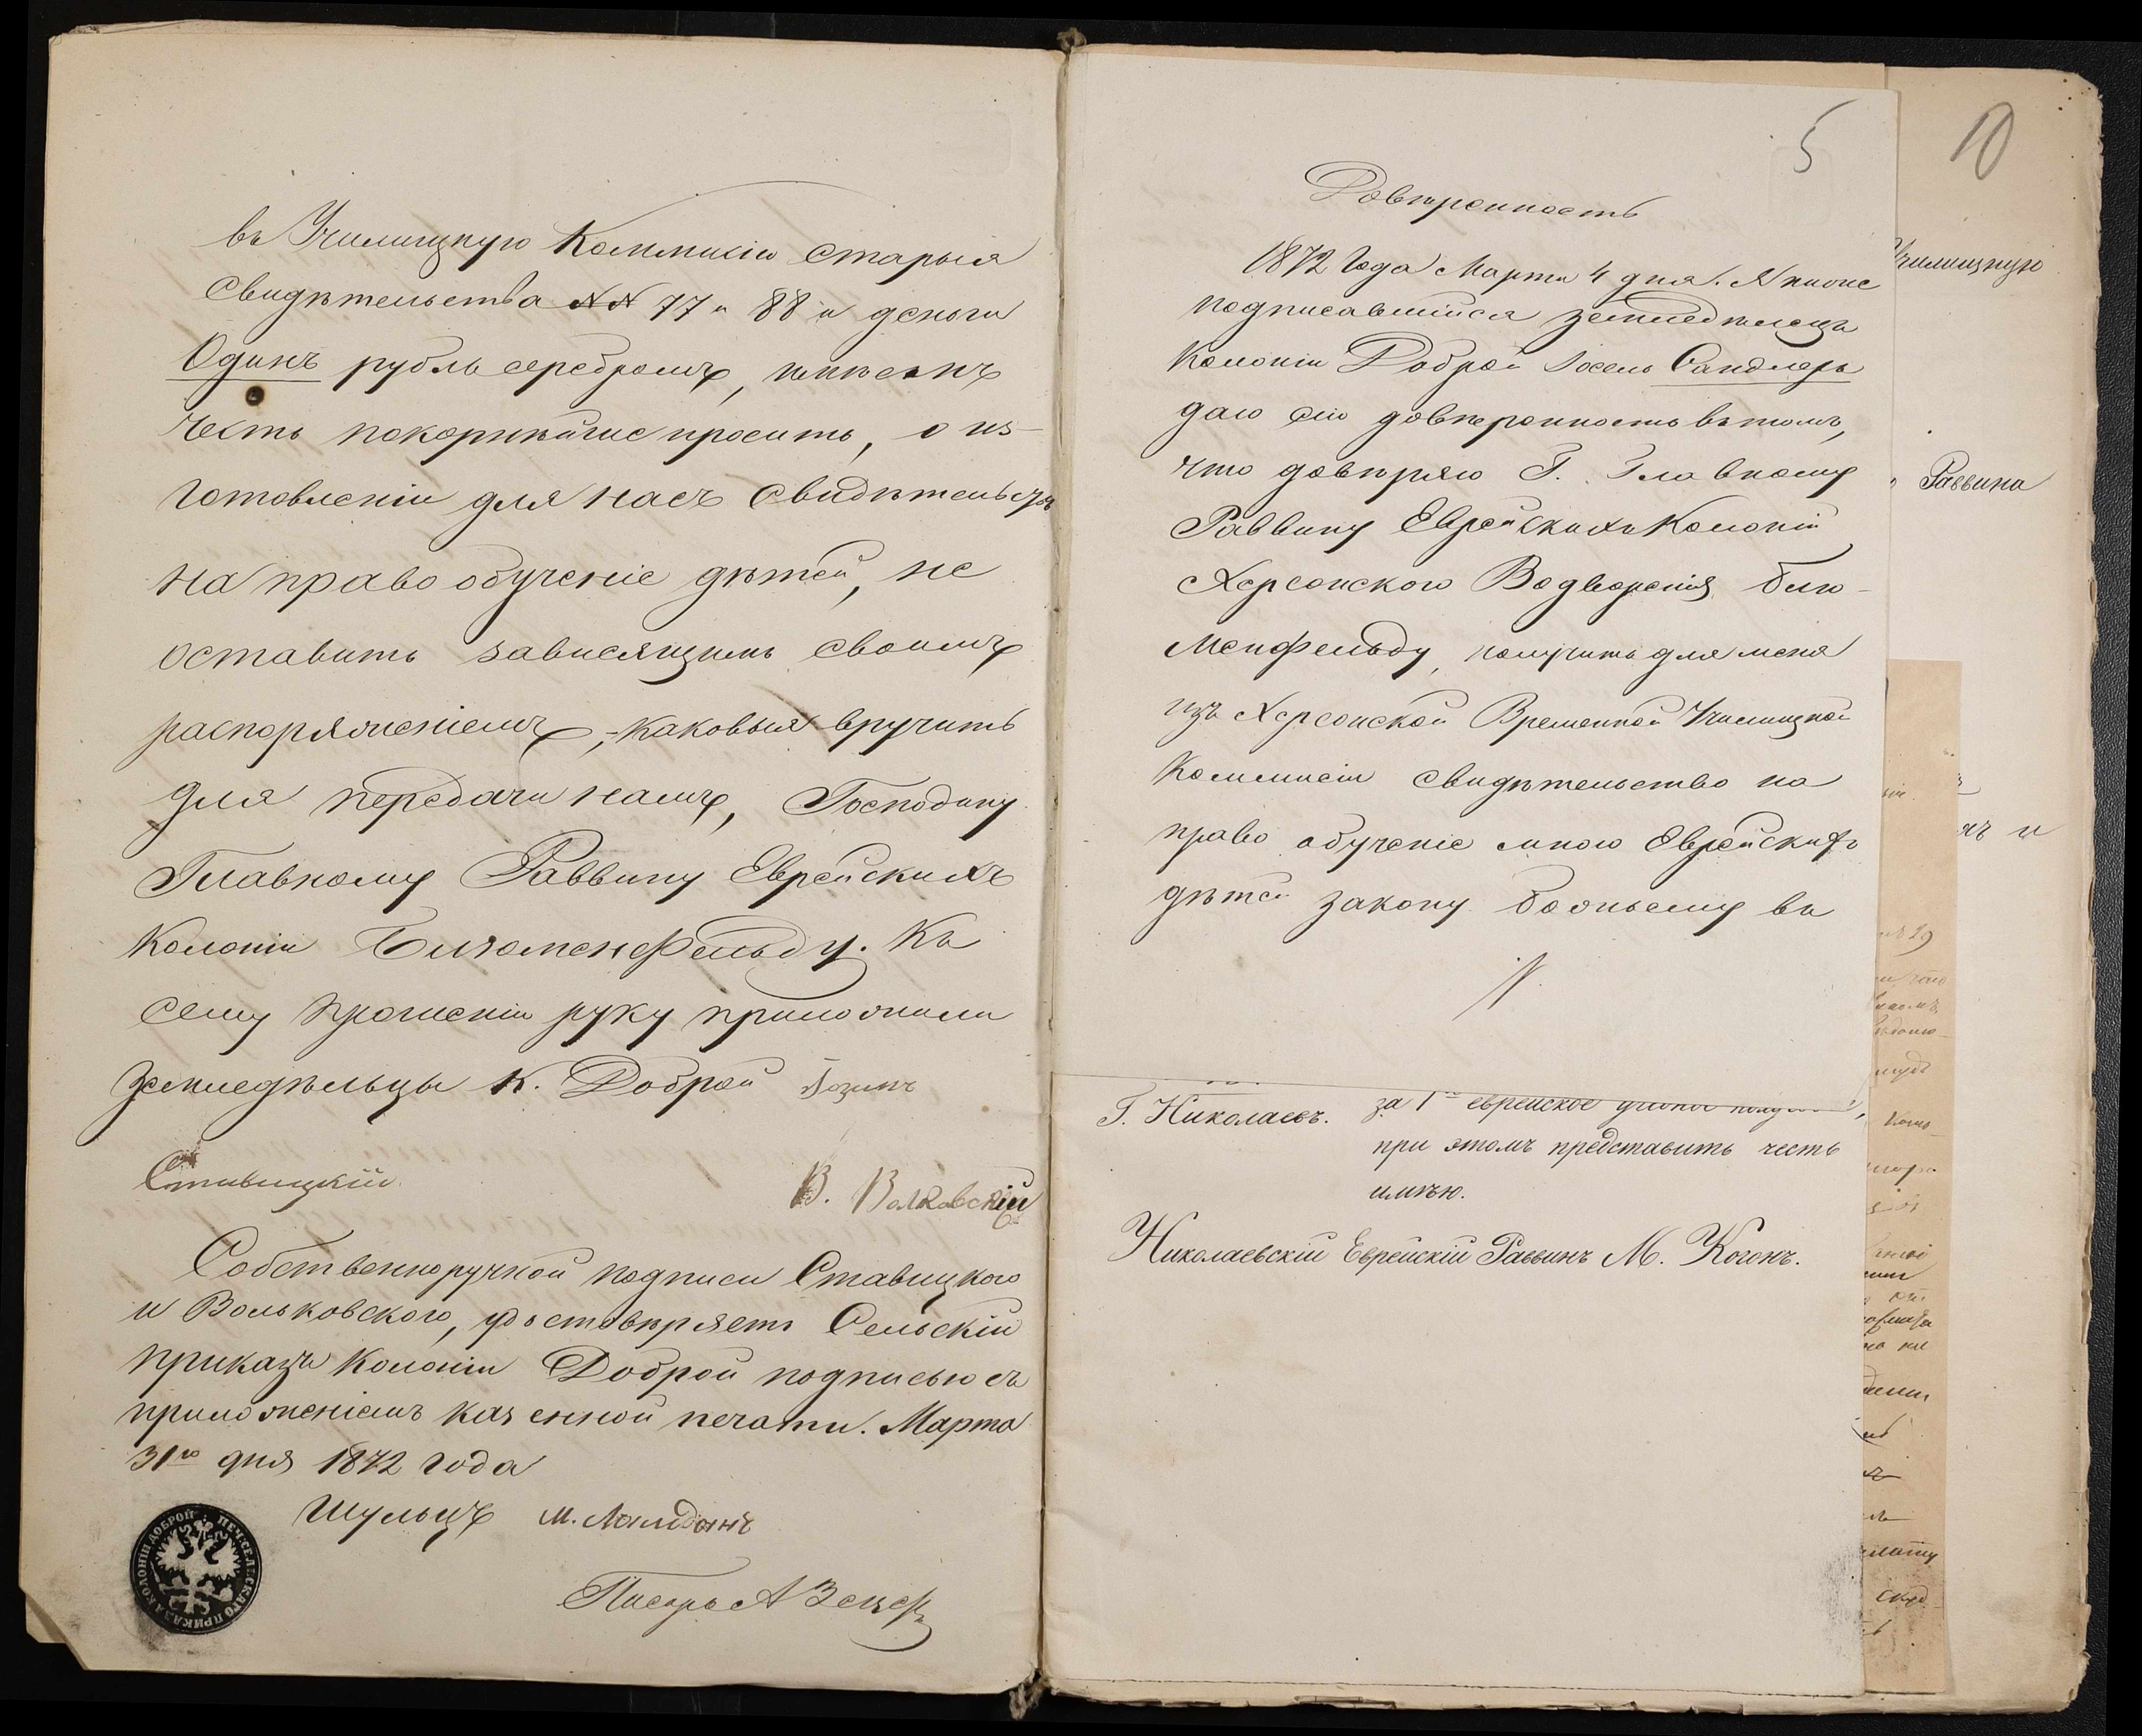 въ Училищную Коммисію старыя
Свидѣтельства №№ 77 и 88 и деньги
Одинъ рубль серебромъ, имѣемъ
честь покорнѣйше просить, о из-
готовленіи для насъ Свидѣтельствъ
на право обученіе дѣтей, не
оставить зависящимъ своимъ
распоряженіемъ, каковыя вручить
для передачи намъ, Господину
Главному Раввину Еврейскихъ
Колоніи Блюменфельду. Къ
сему прошенію руку приложили
земледѣльцы К. Доброй
Ставицкій
В. Волковскій
Собственноручной подписи Ставицкого
и Вольковского, удостовѣряетъ Сельскій
приказъ Колоніи Доброй подписью съ
приложеніемъ казенной печати. Марта
31го дня 1872 года
Шульцъ М. Ландманъ
Писарь А Зецеръ
ПЕЧ. СЕЛЬСКАГО ПРИКАЗА КОЛОНІИ ДОБРОЙ
5
Довѣренность
1872 Года Марта 4 дня. Я ниже
подписавшійся земледѣлецъ
Колоніи Доброй Іосель Сандлеръ
даю сію довѣренность въ томъ,
что довѣряю Г. Главному
Раввину Еврейскихъ Колоній
Херсонского Водворенія Блю-
менфельду, получить для меня
изъ Херсонской Временной Училищной
Коммисіи свидѣтельство на
право обученіе мною Еврейскихъ
дѣтей закону божьему въ
Г. Николаевъ.
за 1е еврейское учебное
при этомъ представить честь
имѣю.
Николаевскій Еврейскій Раввинъ М. Когонъ.
10
Училищную
Раввина
и